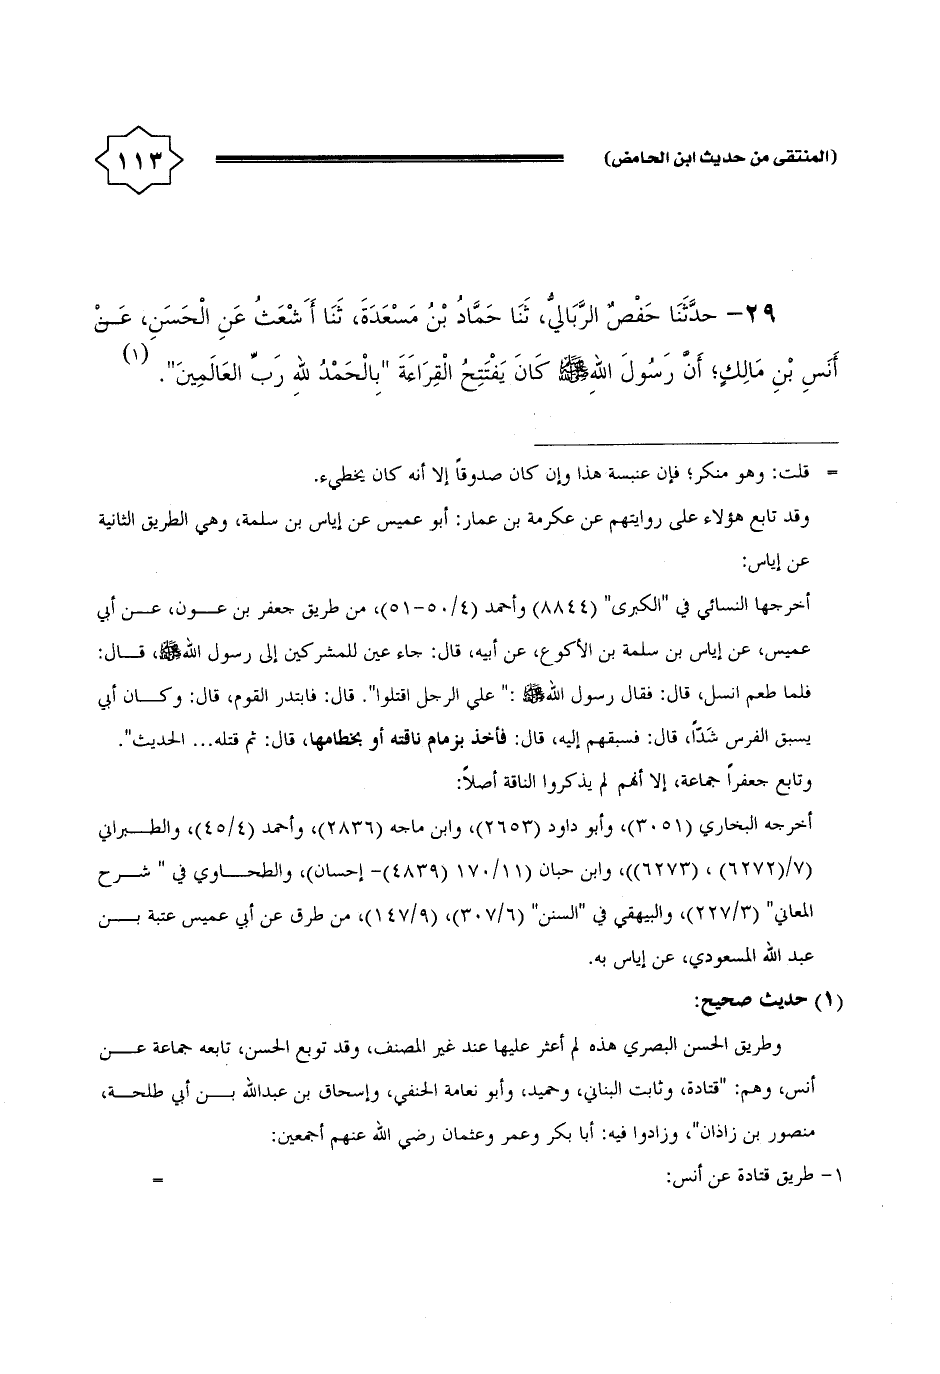 (المنتقى من حديث ابن الحامض)
١١٣
٢٩- حدَّثَنَا حَفْصٌ الرَّبَاليُّ، ثَنَا حَمَّادُ بْنُ مَسْعَدَةَ، ثَنَا أَشْعَثُ عَنِ الْحَسَنِ، عَنْ
أَنَسِ بْنِ مَالِكٍ؛ أَنَّ رَسُولَ اللهِ ﷺ كَانَ يَفْتَتِحُ الْقِرَاءَةَ "بِالْحَمْدُ للهِ رَبِّ العَالَمِينَ". (١)
= قلت: وهو منكر؛ فإن عنبسة هذا وإن كان صدوقاً إلا أنه كان يخطيء.
وقد تابع هؤلاء على روايتهم عن عكرمة بن عمار: أبو عميس عن إياس بن سلمة، وهي الطريق الثانية
عن إياس:
أخرجها النسائي في "الكبرى" (٨٨٤٤) وأحمد (٤/ ٥٠-٥١)، من طريق جعفر بن عـــون، عـــن أبي
عميس، عن إياس بن سلمة بن الأكوع، عن أبيه، قال: جاء عين للمشركين إلى رسول الله ﷺ، قـــال:
فلما طعم انسل، قال: فقال رسول الله ﷺ :" علي الرجل اقتلوا". قال: فابتدر القوم، قال: وكـــان أبي
يسبق الفرس شَدّاً، قال: فسبقهم إليه، قال: فأخذ بزمام ناقته أو بخطامها، قال: ثم قتله... الحديث".
وتابع جعفراً جماعة، إلا أنهم لم يذكروا الناقة أصلاً:
أخرجه البخاري (٣٠٥١)، وأبو داود (٢٦٥٣)، وابن ماجه (٢٨٣٦)، وأحمد (٤٥/٤)، والطـــبراني
(٧/(٦٢٧٢) ، (٦٢٧٣))، وابن حبان (١٧٠/١١ (٤٨٣٩)- إحسان)، والطحـــاوي في " شـــرح
المعاني" (٢٢٧/٣)، والبيهقي في "السنن" (٣٠٧/٦)، (١٤٧/٩)، من طرق عن أبي عميس عتبة بـــن
عبد الله المسعودي، عن إياس به.
(١) حديث صحيح:
وطريق الحسن البصري هذه لم أعثر عليها عند غير المصنف، وقد توبع الحسن، تابعه جماعة عـــن
أنس، وهم: "قتادة، وثابت البناني، وحميد، وأبو نعامة الحنفي، وإسحاق بن عبدالله بـــن أبي طلحـــة،
منصور بن زاذان"، وزادوا فيه: أبا بكر وعمر وعثمان رضي الله عنهم أجمعين:
١- طريق قتادة عن أنس:
=